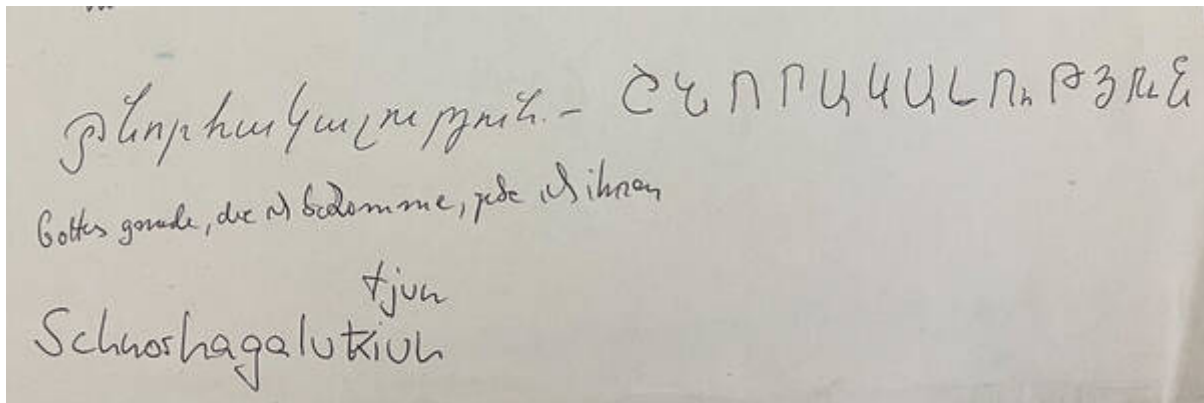 շնորհակալություն. – ՇՆՈՐՀԱԿԱԼՈՒԹՅՈՒՆ
Gottes gnade, die ich bekomme, gebe ich ihnen
tjun
Schnorhagalutiun